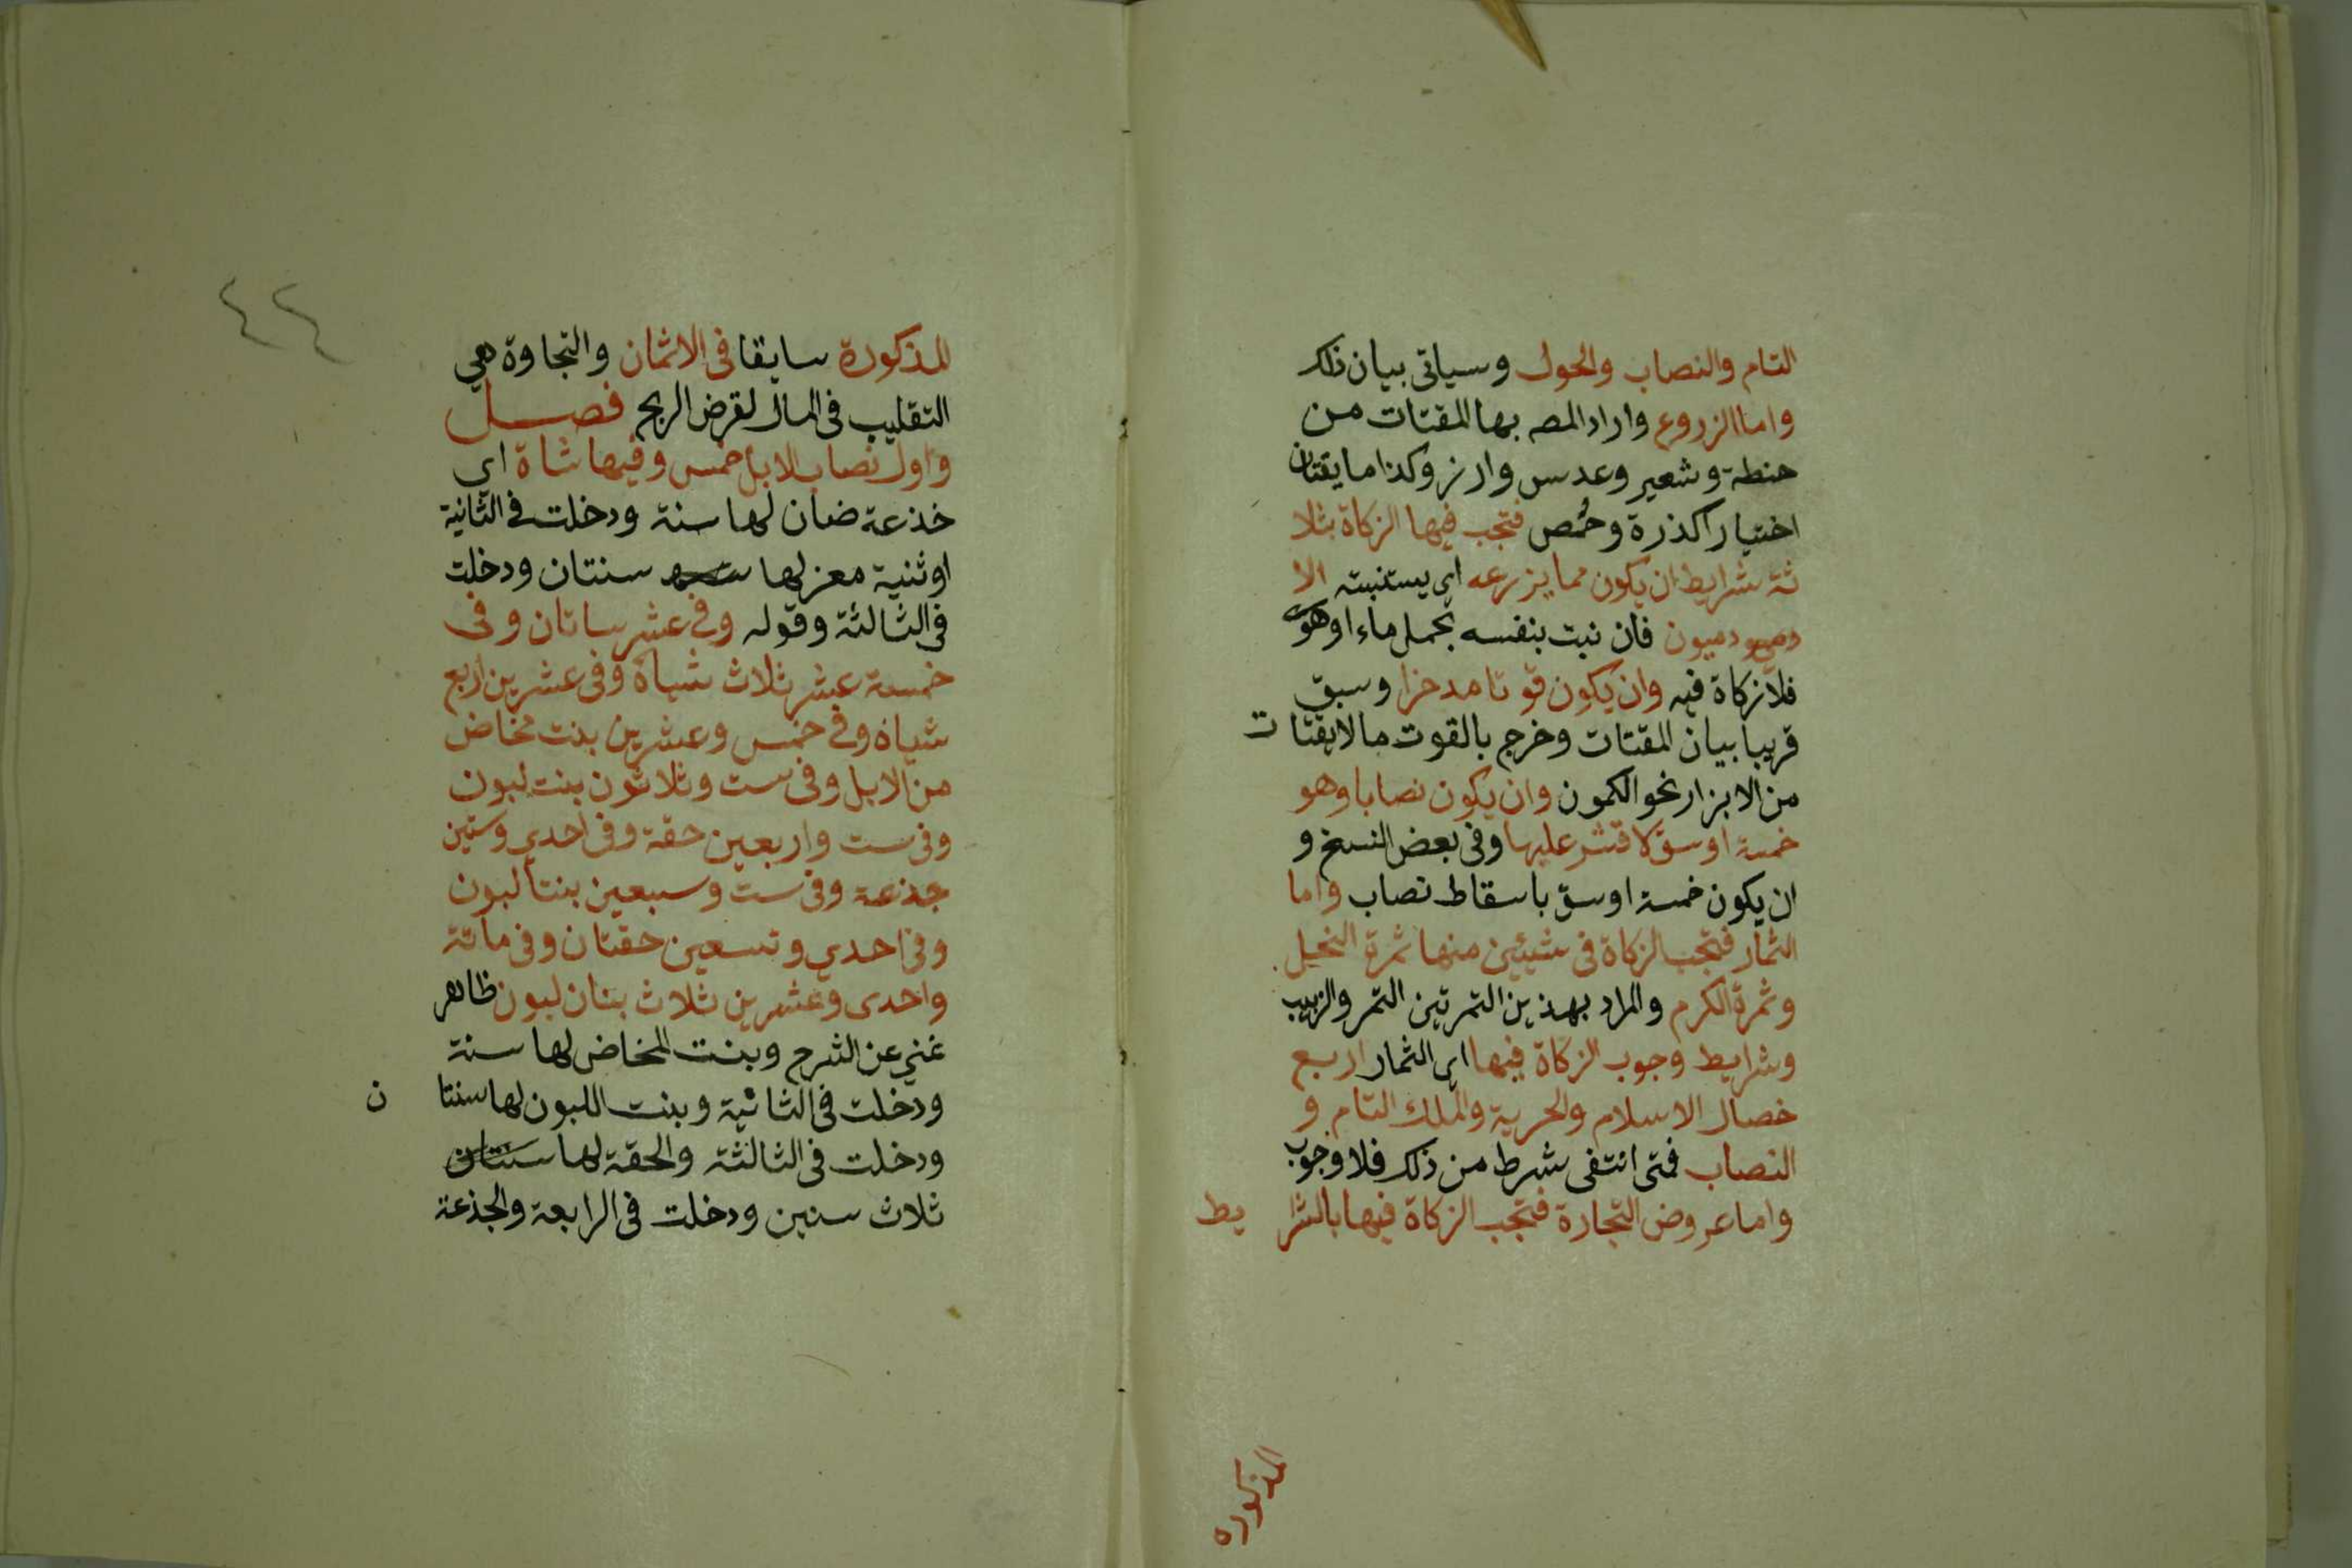 التام والنصاب والحول وسياتى بيان ذلك
واما الزروع واراد المصـ بها المقتات من
حنطة وشعير وعدس وارز وكذا ما يقتات
اختيارا كذرة وحمص فتجب فيها الزكاة بثلا
ثة شرايط ان يكون مما يزرعه اى يستنبته الا
دميون فان نبت بنفسه بحمل ماء او هوى
فلا زكاة فيه وان يكون قوتا مدخرا وسبق
قريبا بيان المقتات وخرج بالقوت ما لا يقتات
من الابزار نحو الكمون وان يكون نصابا وهو
خمسة اوسق لا قشر عليها وفى بعض النسخ و
ان يكون خمسة اوسق باسقاط نصاب واما
الثمار فتجب الزكاة فى شيئين منها ثمرة النخيل
وثمرة الكرم والمراد بهذين الثمرتين التمر والزبيب
وشرايط وجوب الزكاة فيها اى الثمار اربع
خصال الاسلام والحرية والملك التام و
النصاب فمتى انتفى شرط من ذلك فلا وجوب
واما عروض التجارة فتجب الزكاة فيها بالشرايط
المذكوره
٤٢
المذكورة سابقا فى الاثمان والتجاوة هي
التقليب فى المال لغرض الربح فصل
واول نصاب الابل خمس وفيها شاة اي
خذعة ضان لها سنة ودخلت فى الثانية
او ثنية معز لها سنتان ودخلت
فى الثالثة وقوله وفى عشر ساتان وفى
خمسة عشر ثلاث شياه وفى عشرين اربع
شياه وفى خمس وعشرين بنت مخاض
من الابل وفى ست وثلاثون بنت لبون
وفى ست واربعين حقة وفى احدي وستين
جذعة وفى ست وسبعين بنتا لبون
وفى احدي وتسعين حقتان وفى مائة
واحدى وعشرين ثلاث بنات لبون ظاهر
غني عن الشرح وبنت المخاض لها سنة
ودخلت فى الثانية وبنت اللبون لها سنتان
ودخلت فى الثالثة والحقة لها سنتان
ثلاث سنين ودخلت فى الرابعة والجذعة